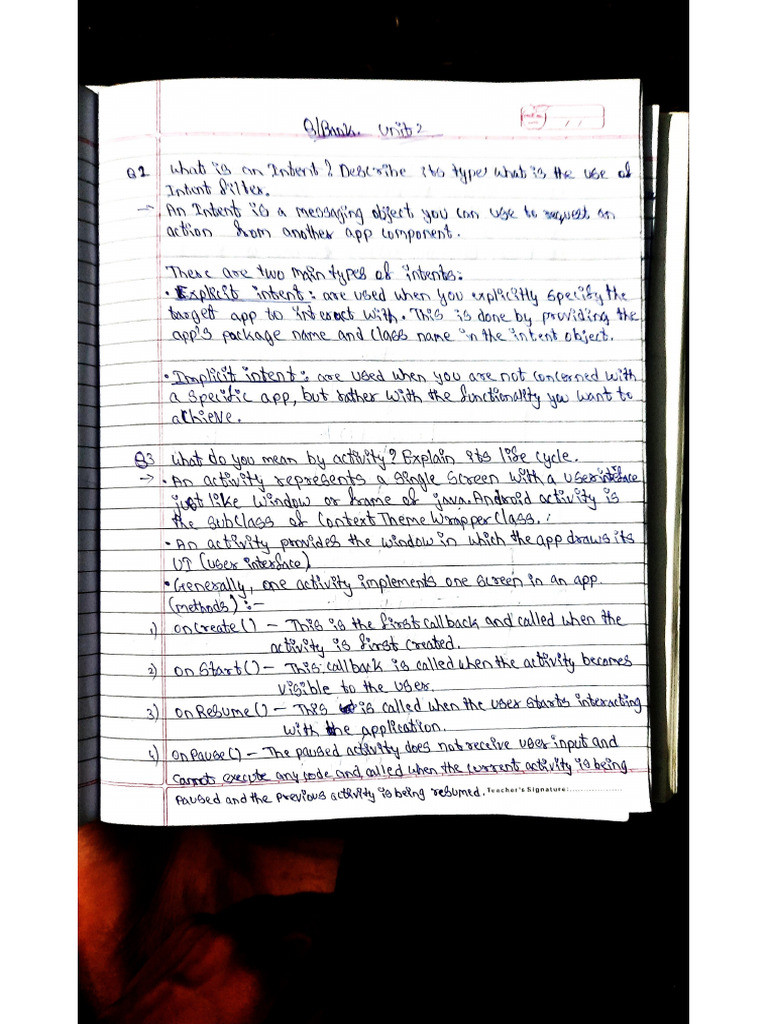 Q/Bank. Unit 2
Q2 What is an Intent? Describe its type? What is the use of
Intent filter.
→ An Intent is a messaging object you can use to request an
action from another app component.
There are two main types of intents:
• Explicit intent: are used when you explicitly specify the
target app to interact with. This is done by providing the
app's package name and class name in the intent object.
• Implicit intent: are used when you are not concerned with
a specific app, but rather with the functionality you want to
achieve.
Q3 What do you mean by activity? Explain its life cycle.
→ • An activity represents a single screen with a user interface
just like window or frame of java. Android activity is
the subclass of ContextThemeWrapper class.
• An activity provides the window in which the app draws its
UI (user interface)
• Generally, one activity implements one screen in an app.
(methods) :-
1) onCreate() - This is the first callback and called when the
activity is first created.
2) onStart() - This callback is called when the activity becomes
visible to the user.
3) onResume() - This is called when the user starts interacting
with the application.
4) onPause() - The paused activity does not receive user input and
cannot execute any code and called when the current activity is being
paused and the previous activity is being resumed. Teacher's Signature:....................